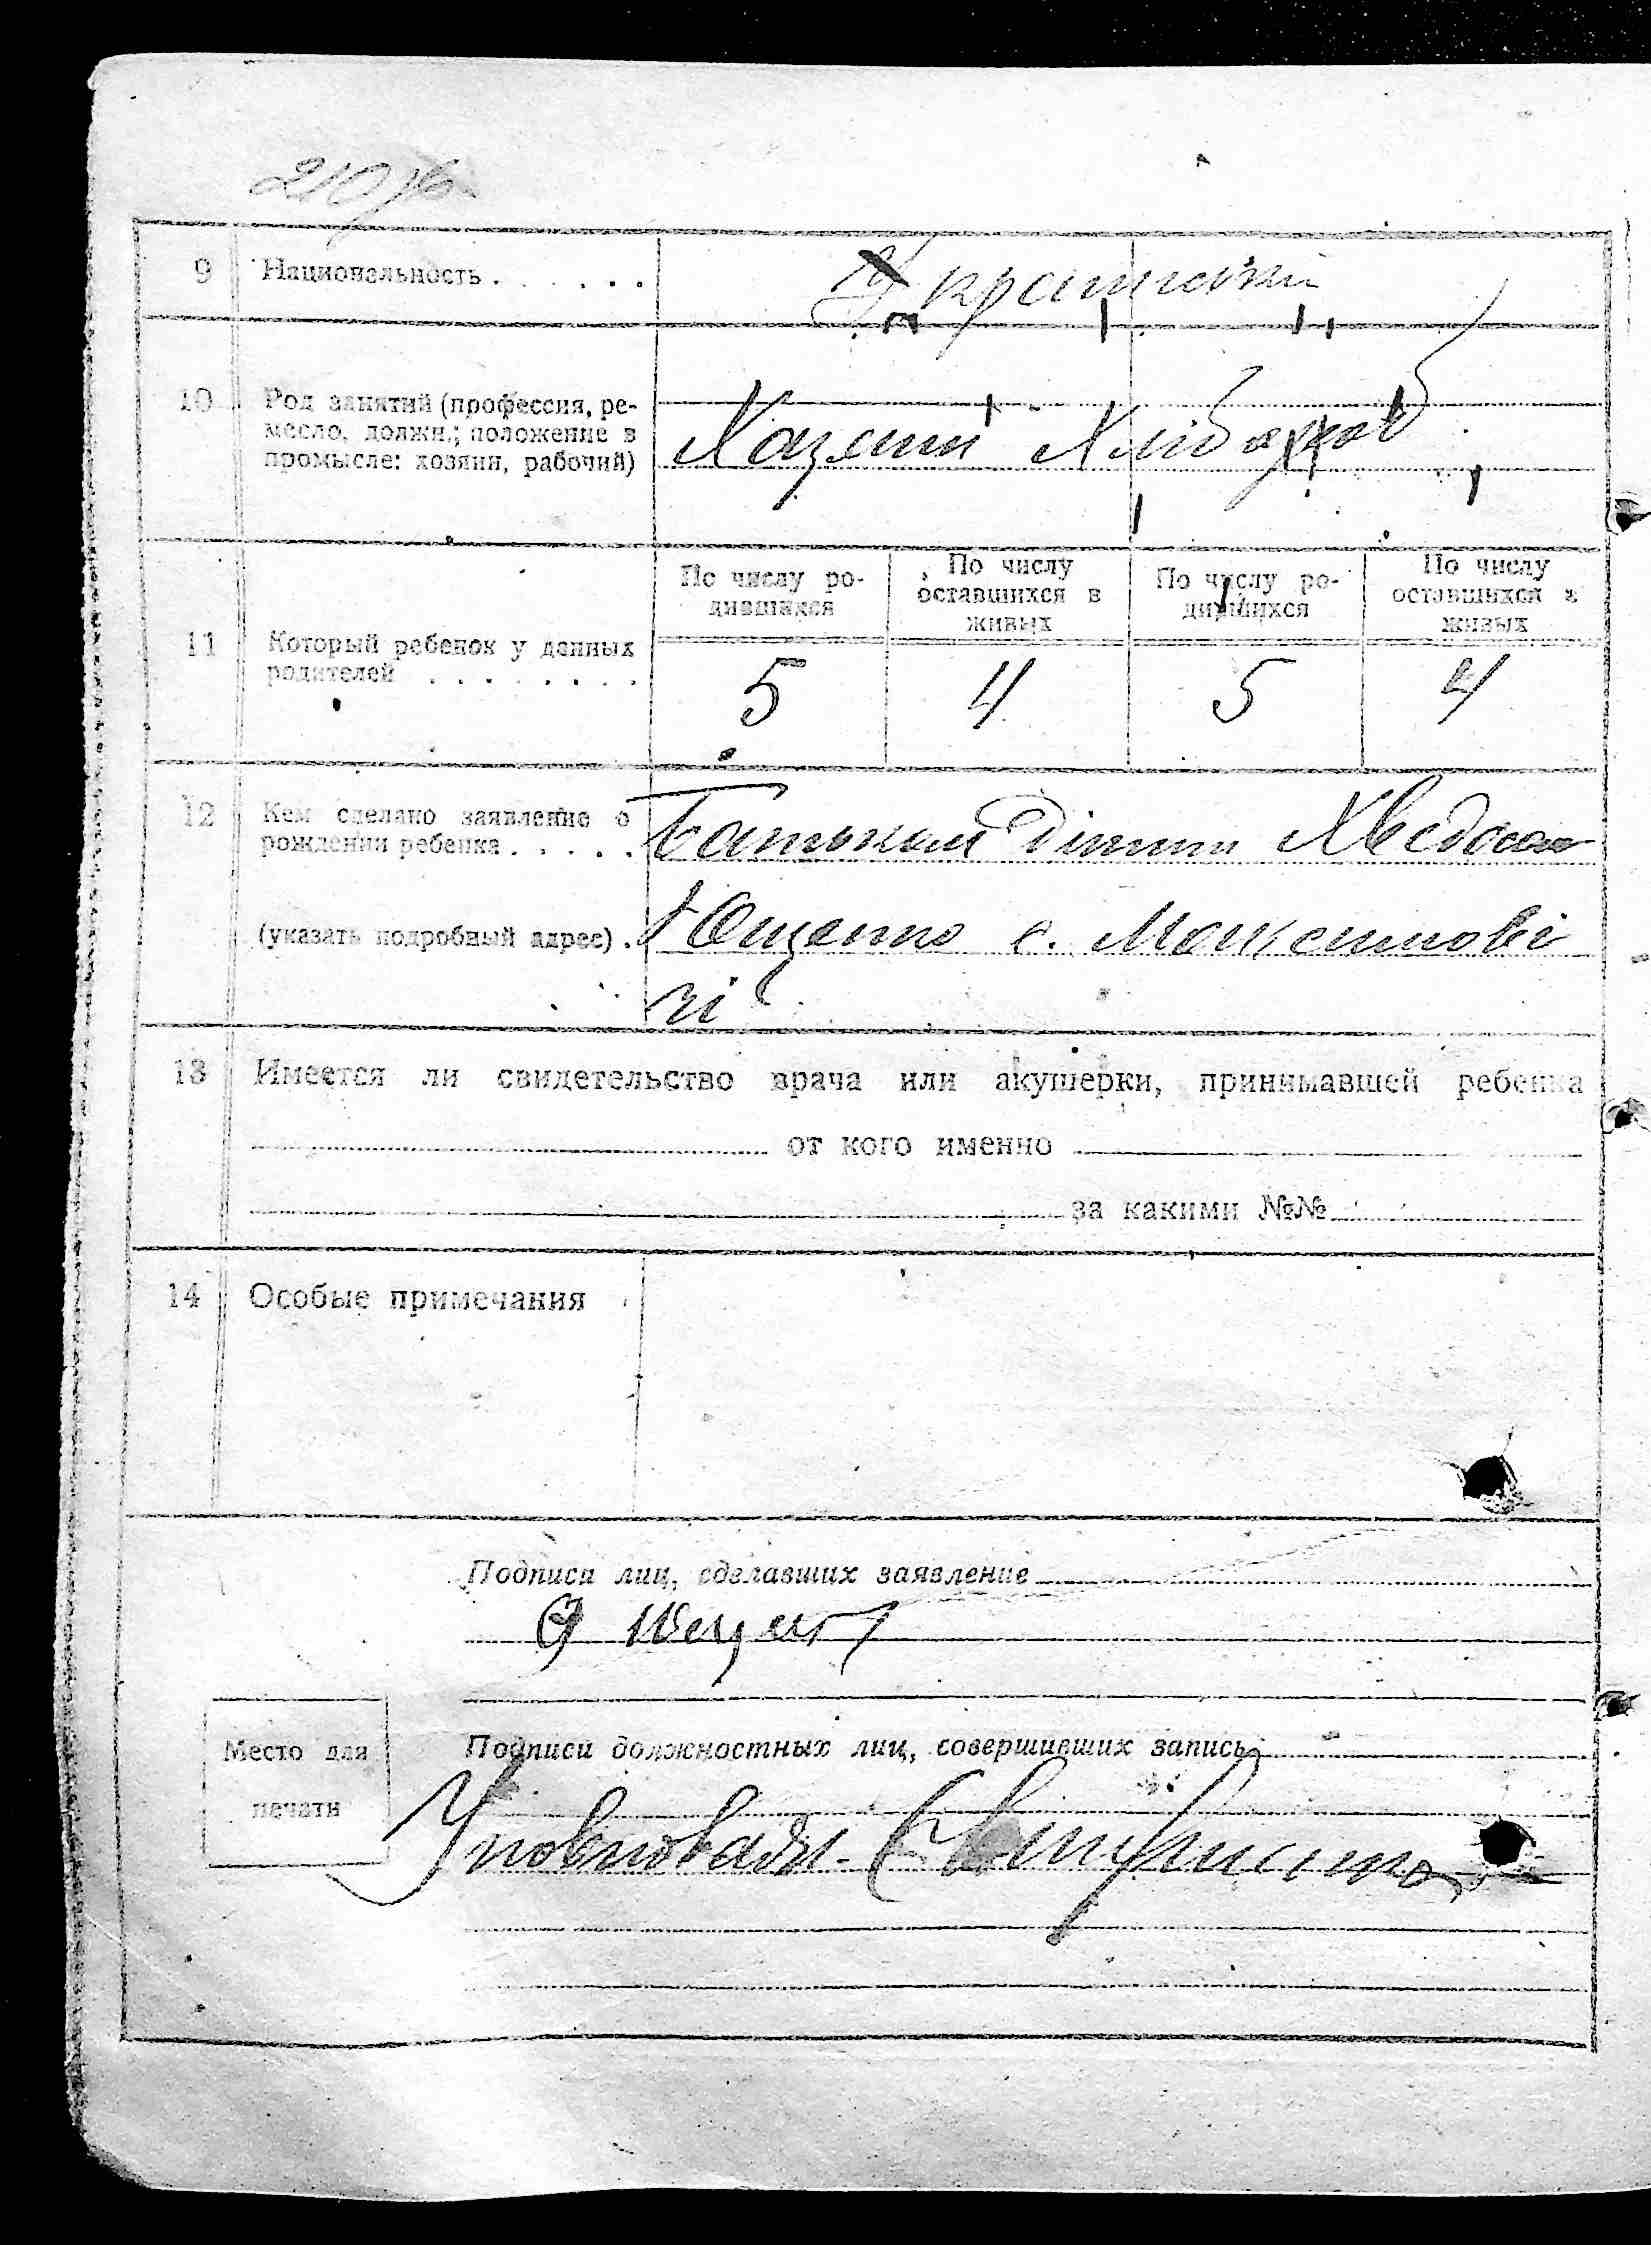 210
9 Национальность . . . . . . Українській
10 Род занятий (профессия, ре-
месло, должн.; положение в
промысле: хозяин, рабочий)
Хазяин Хлібороб
11 Который ребенок у данных
родителей . . . . . . . .
По числу ро-
дившихся
По числу
оставшихся в
живых
По числу ро-
дившихся
По числу
оставшихся в
живых
5 4 5 4
12 Кем сделано заявление о
рождении ребенка . . . . .
Батьком Дітини Хведосом
(указать подробный адрес) .
Ющенко с. Максимові
чі
13 Имеется ли свидетельство врача или акушерки, принимавшей ребенка
от кого именно
за какими №№
14 Особые примечания
Подписи лиц, сделавших заявление
Место для
печати
Подписи должностных лиц, совершивших запись
Уповноваж.